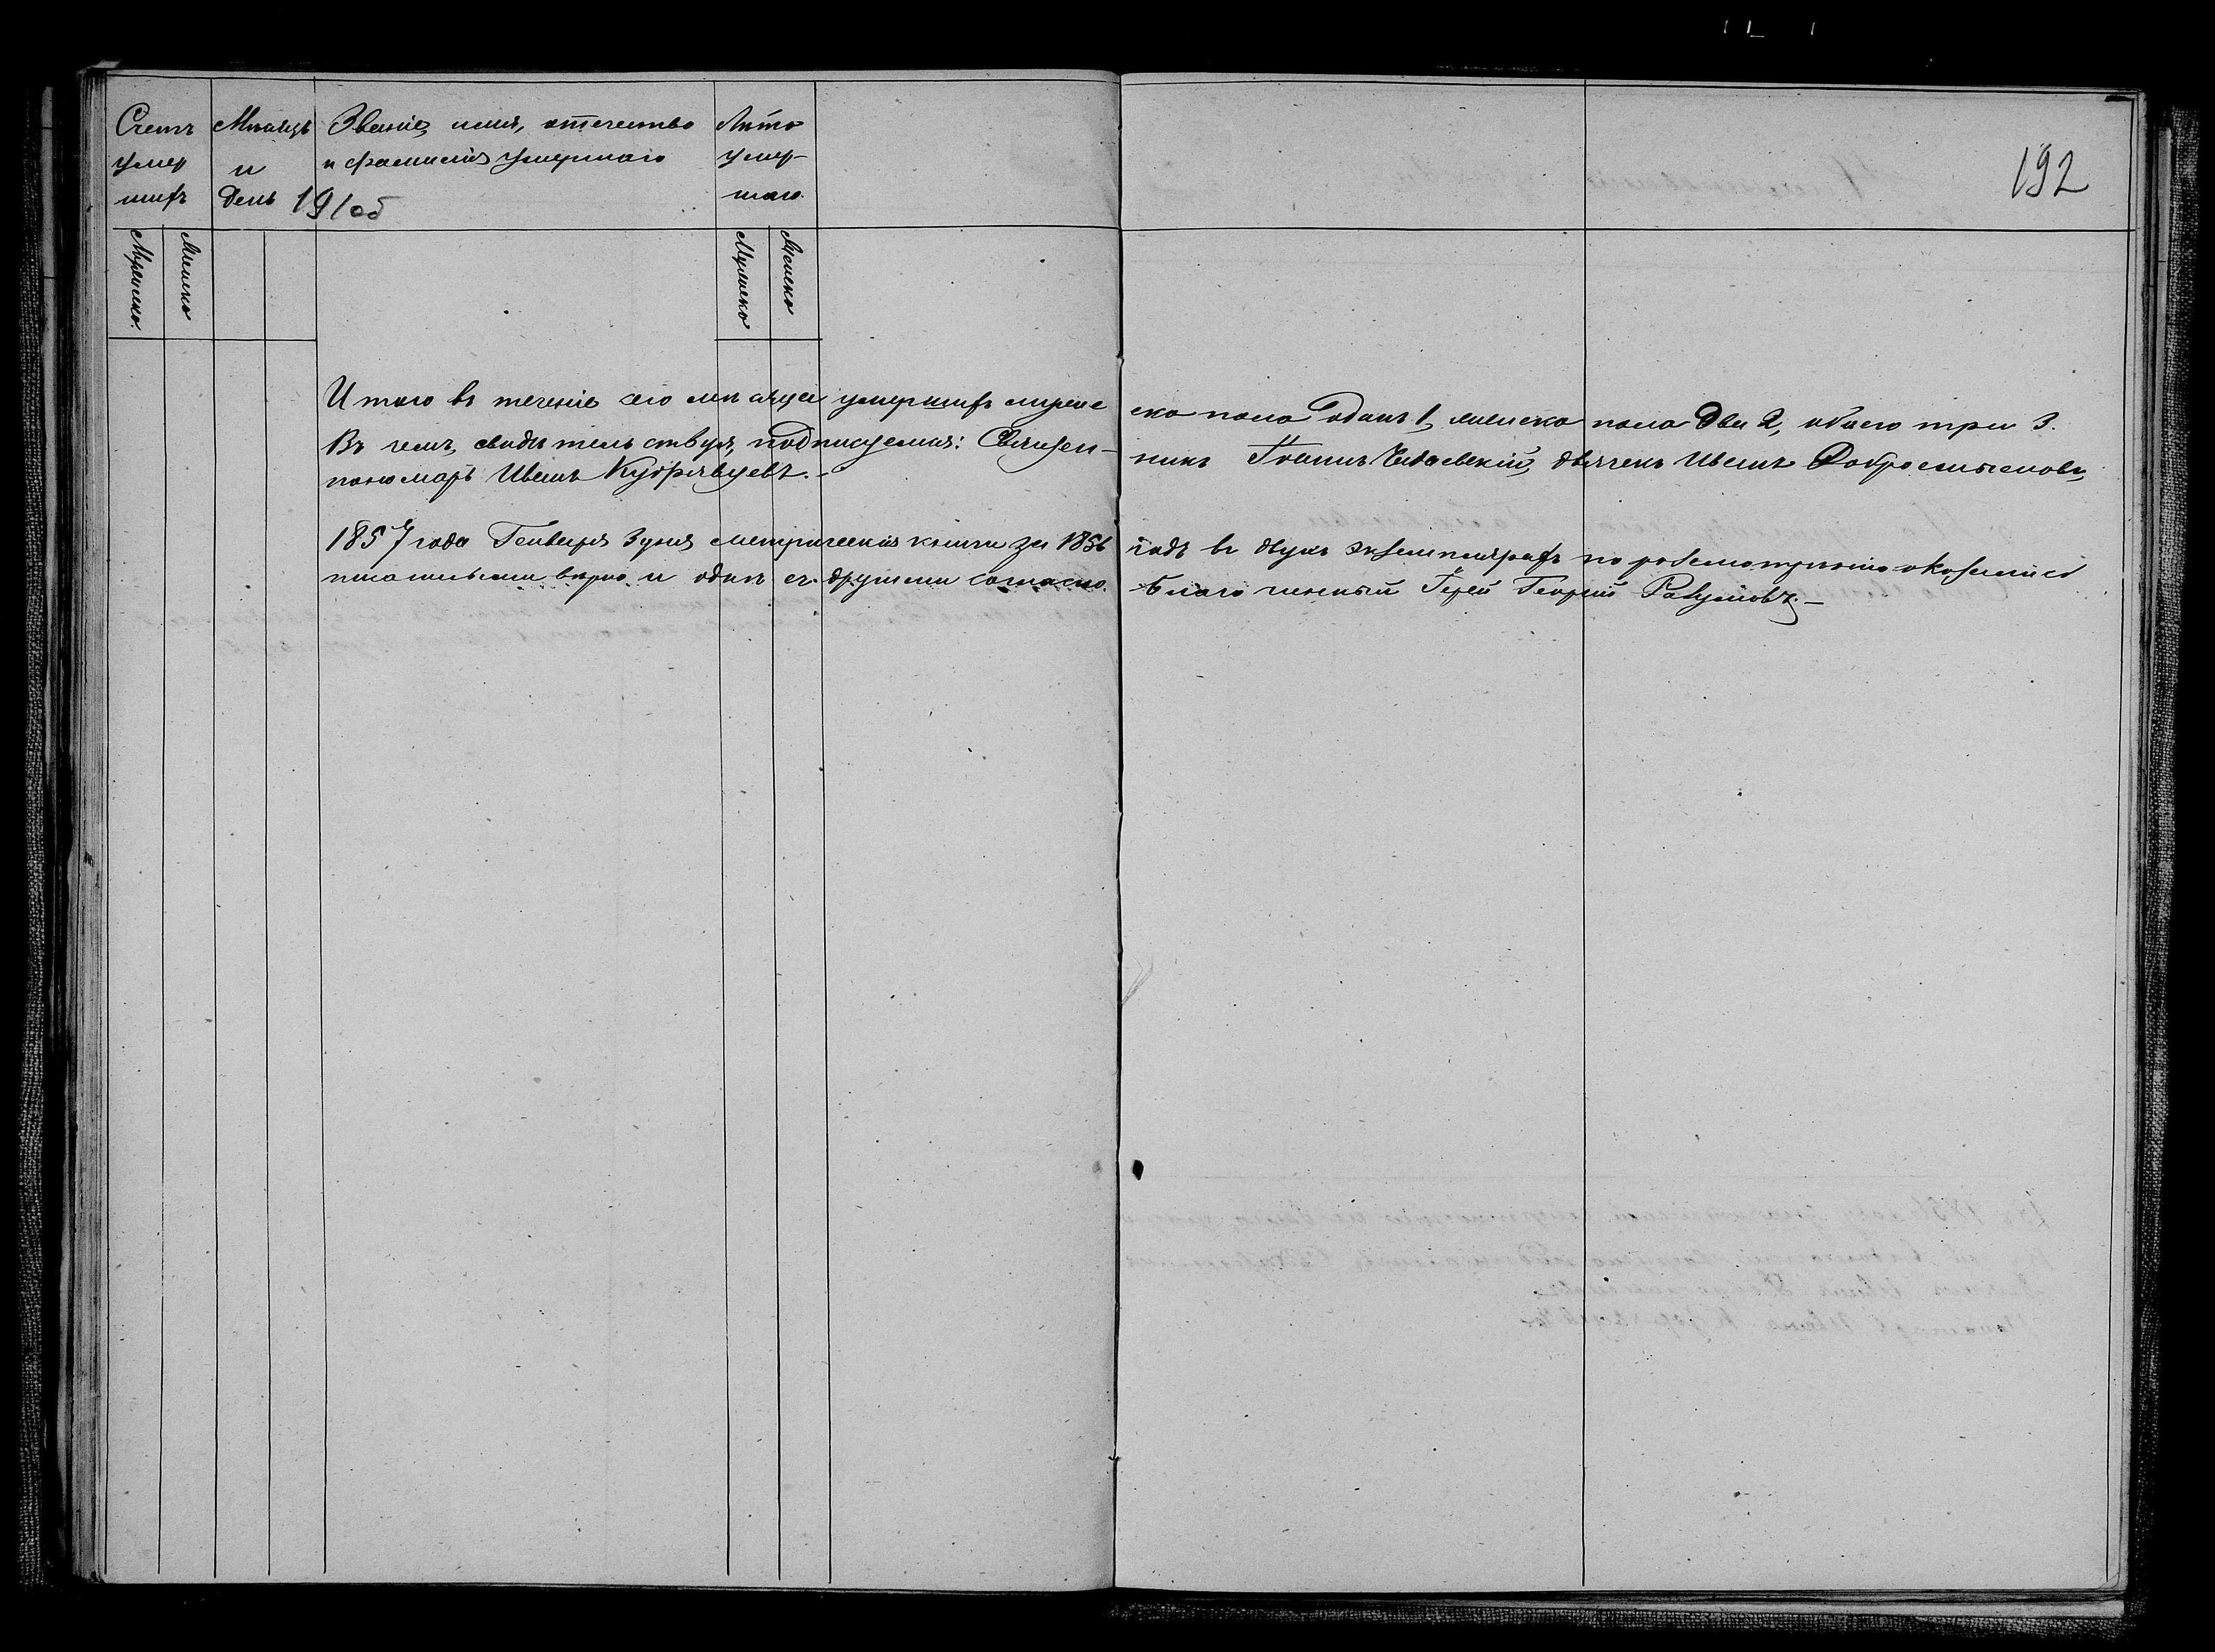 192
Счетъ умер шихъ
Мѣсяцъ и день
Званіе, имя, отечество
и фамилія умершаго
Лѣта умер- шаго.
191об
Мужеска.
Женска
Мужеска
Женска
Итого въ теченіе сего мѣсяца умершихъ мужес ка пола одинъ 1, женска пола две 2, обоего три 3.
Въ чемъ, свидѣтельствуя, подписуемся: Священ- никъ Іоаннъ дьячекъ Иванъ Добросмысловъ,
пономарь Иванъ Кудрявцевъ.-
1857 года Генваря 3 дня метрическія книги за 1856 годъ въ двухъ экземплярахъ по розсмотрѣнію оказались
писанными вѣрно и одинъ съ другими согласно. Благочинный Іерей Георгій Разумовъ.-